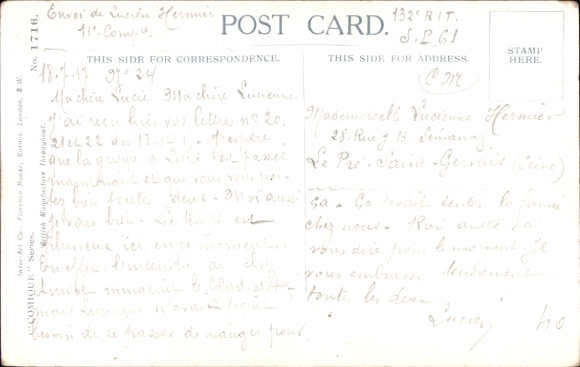 Envoi de Lucien Hermier
11e Compie
POST CARD.
132e R I T.
S. P. 61
THIS SIDE FOR CORRESPONDENCE.
THIS SIDE FOR ADDRESS.
STAMP
HERE.
No. 1716.
"COMIQUE" Series.
Inter-Art Co., Florence House, Barnes, London, S.W.
British Manufacture Throughout.
18-7-17 No 24
Ma chère Lucie Ma chère Lucienne
J'ai reçu hier vos lettre no 20,
21 et 22 des 13, 14 J'espère
que la grippe à Lucie est passée
maintenant et que vous vous
tez bien toutes deux - Moi aussi
je vais bien - Le temps est
ici en ce moment.
l'incendie de chez
menaçait le
mais Lucienne n'avait point
besoin de se passer de manger pour
Mademoiselle Lucienne Hermier
28 Rue J B Sémanaz
Le Pré-Saint-Gervais (Seine)
ça - Ça devait sentir la fumée
chez nous - Rien autre à
vous dire pour le moment. Je
vous embrasse tendrement
toutes les deux
Lucien
40